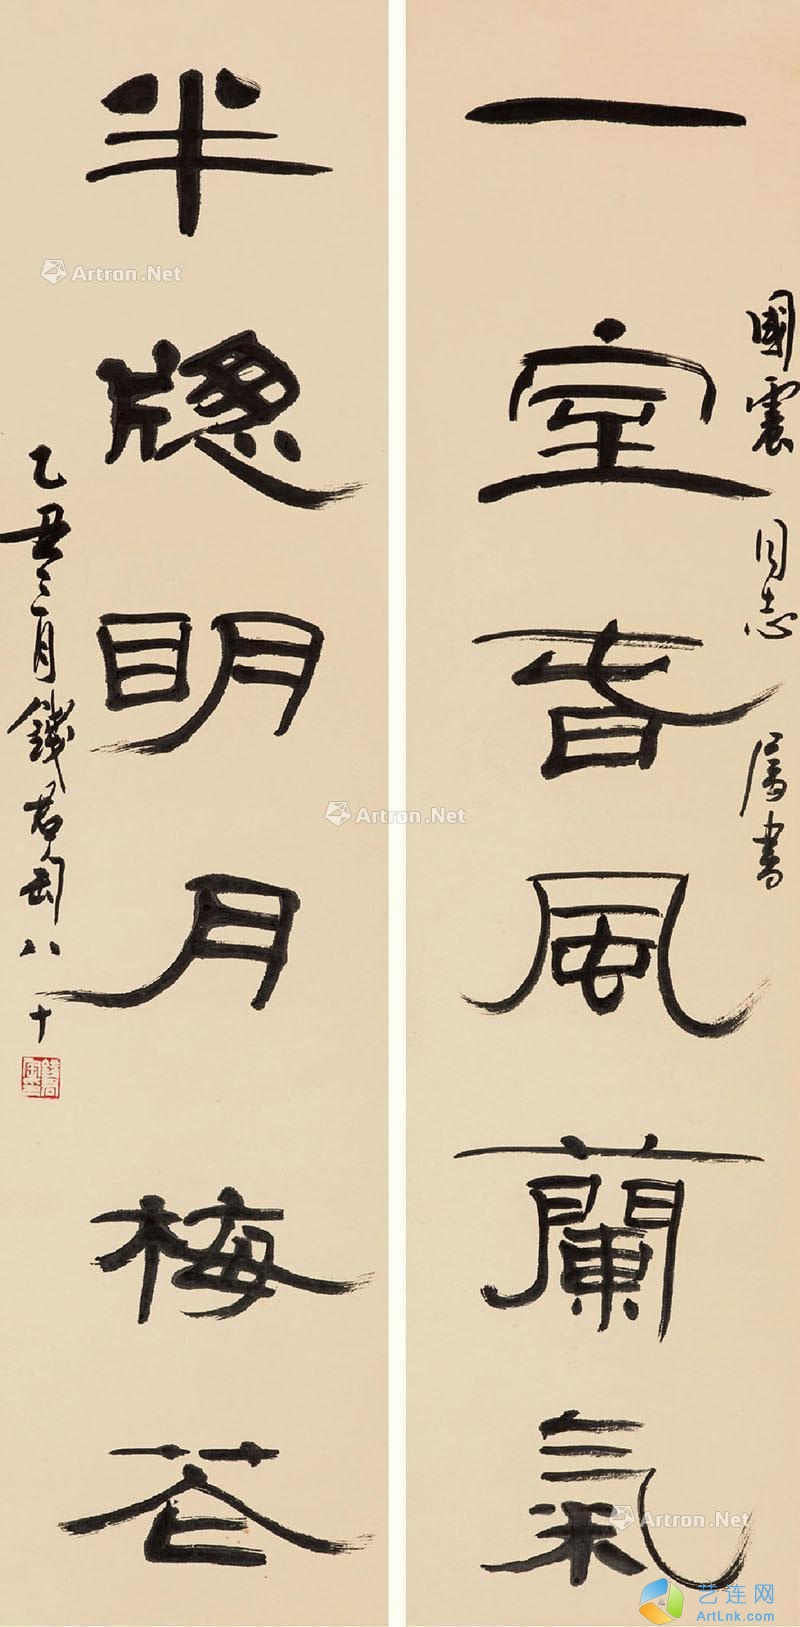 國震同志属書
一室春風蘭氣
半牕明月梅花
乙丑三月錢君匋八十
Artron.Net
Artron.Net
Artron.Net
艺连网
ArtLnk.com